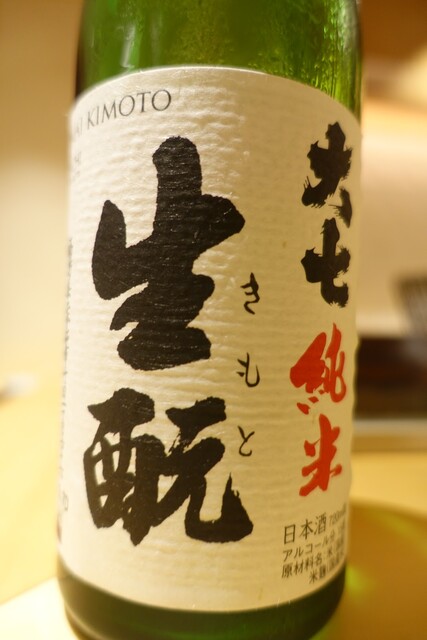 KIMOTO
大七
純米
生酛
きもと
日本酒
アルコール
原材料名
米麹